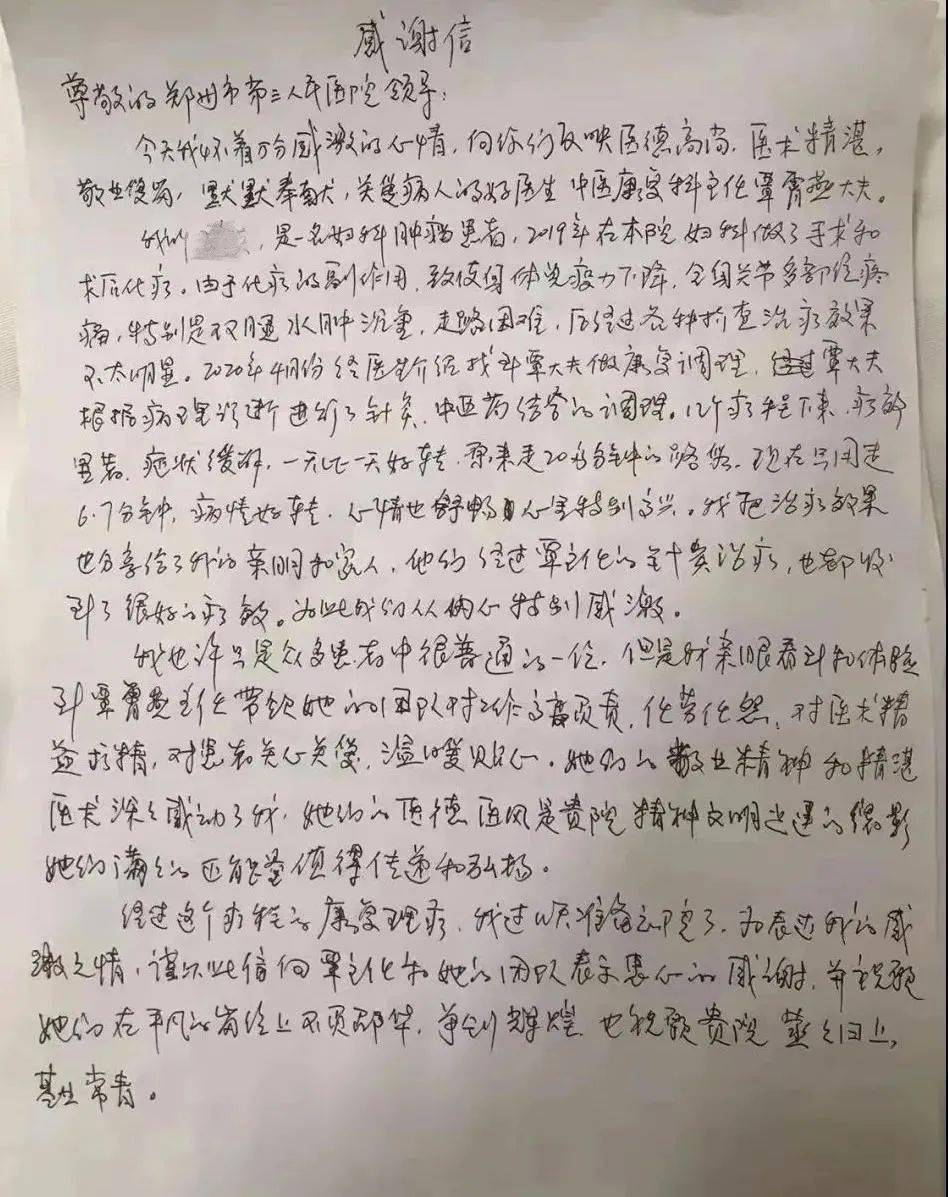 感谢信
尊敬的郑州市第三人民医院领导：
今天我怀着万分感激的心情，向你们反映医德高尚，医术精湛，
敬业爱岗，默默奉献，关爱病人的好医生中医康复科主任覃霄燕大夫。
我叫，是一名妇科肿瘤患者，2019年在本院妇科做了手术和
术后化疗。由于化疗的副作用，致使身体免疫力下降，全身关节多部位疼
痛，特别是双腿水肿沉重，走路困难，历经过各种检查治疗效果
不太明显。2020年4月份经医生介绍找到覃大夫做康复调理，经过覃大夫
根据病理诊断进行了针灸、中医药结合的调理。几个疗程下来，疗效
显著，症状缓解，一天比一天好转，原来走20多分钟的路程，现在只用走
6.7分钟，病情好转，心情也舒畅心里特别高兴。我把治疗效果
也分享给了我的亲朋和家人，他们经过覃主任的针灸治疗，也都收
到了很好的疗效。为此我们从内心特别感激。
我也许只是众多患者中很普通的一位，但是我亲眼看到和体验
到覃霄燕主任带领她的团队对工作高度负责，任劳任怨，对医术精
益求精，对患者关心关爱，温暖贴心。她们的敬业精神和精湛
医术深深感动了我，她们的医德医风是贵院精神文明建设的缩影
她们满满的正能量值得传递和弘扬。
经过这个疗程的康复理疗，我过几天准备出院了，为表达我的感
激之情，谨以此信向覃主任和她的团队表示衷心的感谢，并祝愿
她们在平凡的岗位上不负韶华，争创辉煌，也祝愿贵院蒸蒸日上，
基业常青。